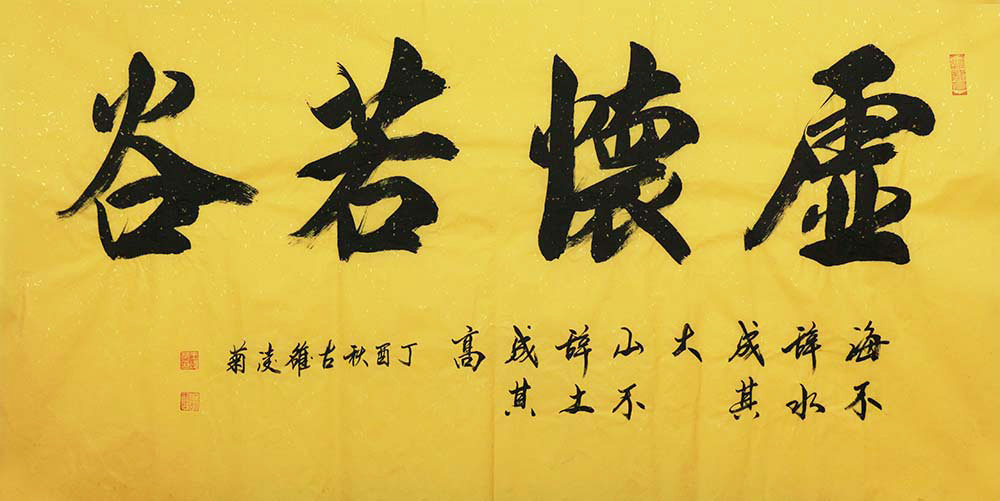 虚懷若谷
海不
辞水
成其
大
山不
辞土
成其
高
丁酉秋古雒凌菊